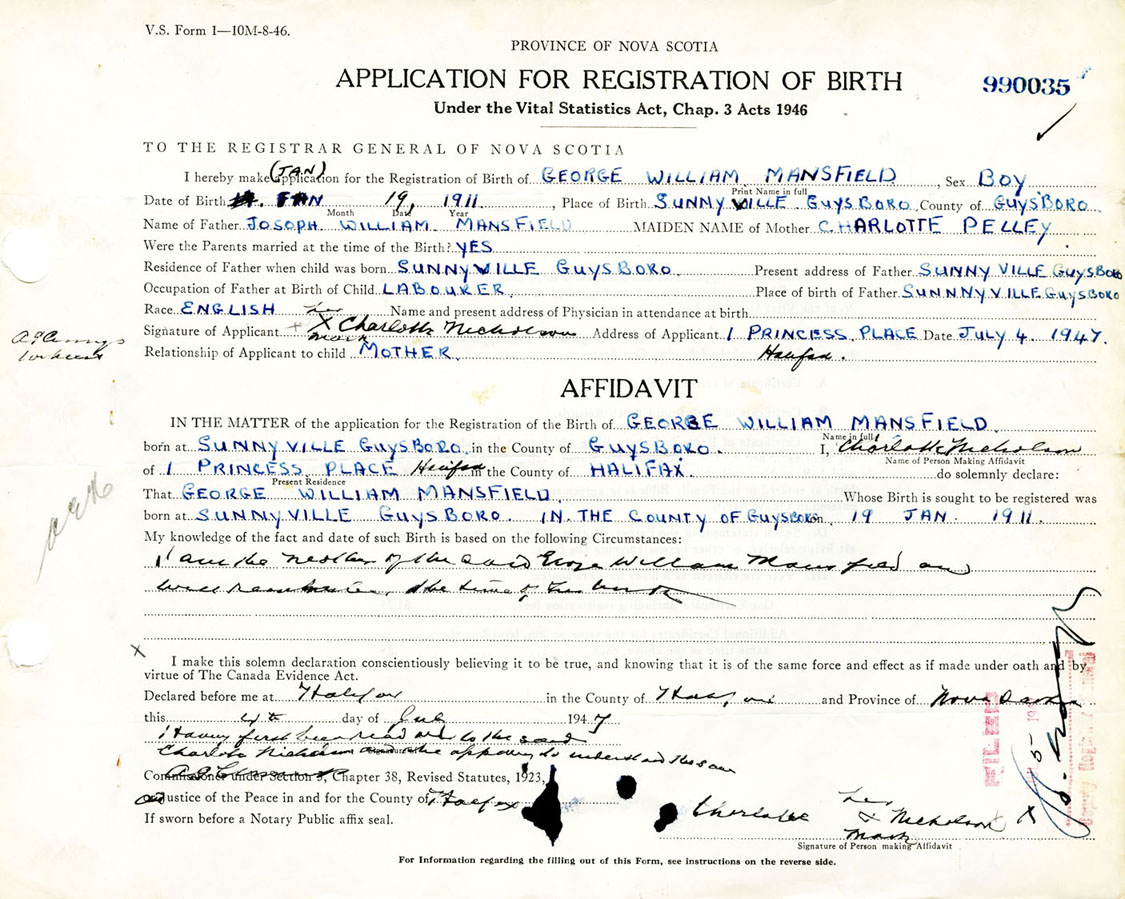 V.S. Form 1—10M-8-46.
PROVINCE OF NOVA SCOTIA
APPLICATION FOR REGISTRATION OF BIRTH
990035
Under the Vital Statistics Act, Chap. 3 Acts 1946
TO THE REGISTRAR GENERAL OF NOVA SCOTIA
(JAN)
I hereby make application for the Registration of Birth of GEORGE WILLIAM MANSFIELD, Sex BOY
Print Name in full
Date of Birth JAN 19, 1911, Place of Birth SUNNYVILLE GUYSBORO County of GUYSBORO
Month Date Year
Name of Father JOSOPH WILLIAM MANSFIELD MAIDEN NAME of Mother CHARLOTTE PELLEY
Were the Parents married at the time of the Birth? YES
Residence of Father when child was born SUNNYVILLE GUYSBORO Present address of Father SUNNYVILLE GUYSBORO
Occupation of Father at Birth of Child LABOURER Place of birth of Father SUNNNYVILLE GUYSBORO
Race ENGLISH Name and present address of Physician in attendance at birth
her
Signature of Applicant X Charlotte Nicholson Address of Applicant 1 PRINCESS PLACE Date JULY 4 1947.
mark
Halifax.
Relationship of Applicant to child MOTHER
AFFIDAVIT
IN THE MATTER of the application for the Registration of the Birth of GEORGE WILLIAM MANSFIELD
Name in full
born at SUNNYVILLE GUYSBORO in the County of GUYSBORO. I, Charlotte Nicholson
Name of Person Making Affidavit
of 1 PRINCESS PLACE Halifax the County of HALIFAX do solemnly declare:
Present Residence
That GEORGE WILLIAM MANSFIELD Whose Birth is sought to be registered was
born at SUNNYVILLE GUYSBORO. IN THE COUNTY OF GUYSBORO on 19 JAN. 1911.
My knowledge of the fact and date of such Birth is based on the following Circumstances:
I am the Mother of the said George William Mansfield and
well remember the time of his birth
X
I make this solemn declaration conscientiously believing it to be true, and knowing that it is of the same force and effect as if made under oath and by
virtue of The Canada Evidence Act.
Declared before me at Halifax in the County of Halifax and Province of Nova Scotia
this 4th day of July 1947
Having first been read over to the said
Charlotte Nicholson and she appearing to understand the same
Commissioner under Section 3, Chapter 38, Revised Statutes, 1923,
and Justice of the Peace in and for the County of Halifax
If sworn before a Notary Public affix seal.
her
Charlotte X Nicholson X
mark
Signature of Person making Affidavit
FILED
Deputy Registrar
For Information regarding the filling out of this Form, see instructions on the reverse side.